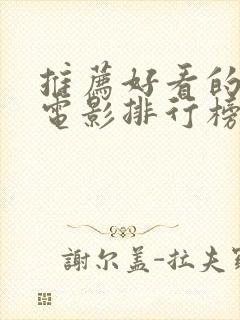 推薦好看的
電影排行榜
謝尔盖-拉夫